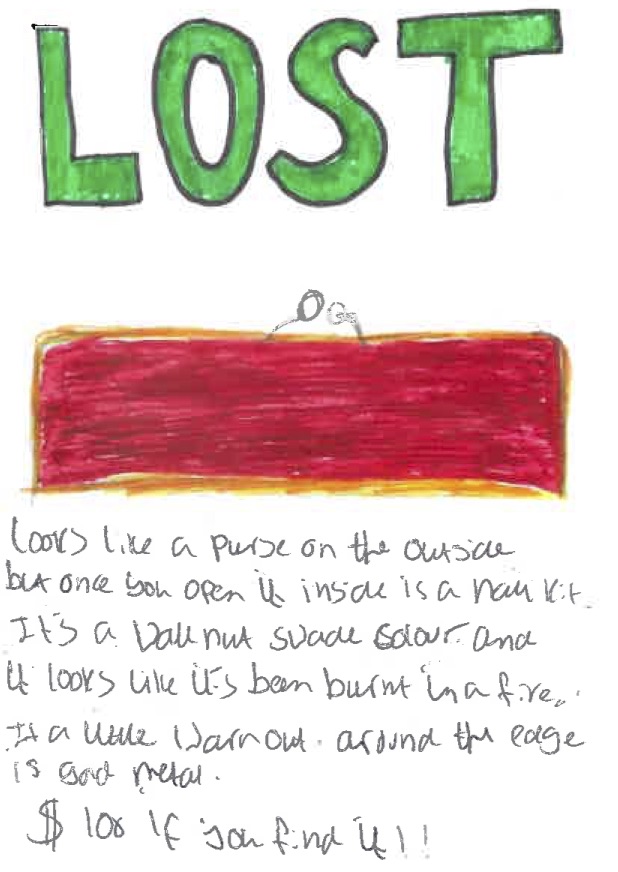 LOST
looks like a purse on the outside
but once you open it inside is a nail kit.
It's a Wallnut suade colour and
it looks like it's been burnt in a fire.
It a little Warn out. around the edge
is gold metal.
$ 100 If you find it!!